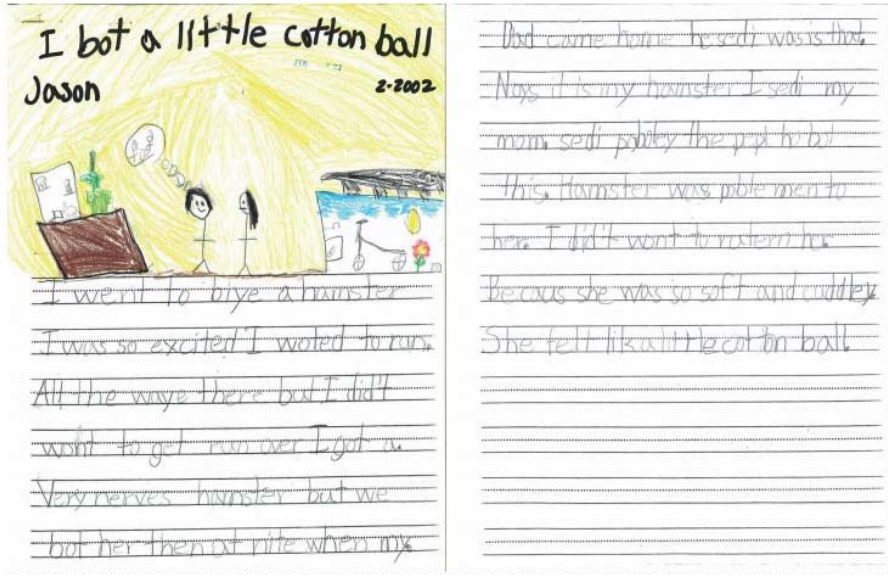 I bot a little cotton ball
Jason
2-2002
I went to biye a hamster
I was so excited I woted to run.
All the waye there but I did't
wont to get run over I got a.
Very nerves hamster but we
bot her then at nite when my
Dad came home he sedi was is that.
Nays it is my hamster I sedi my
mom. sedi the pepl ho bot
this. Hamster was men to
her. I did't wont to her.
Becaus she was so soft and cuddley.
She felt lik a little cotton ball.